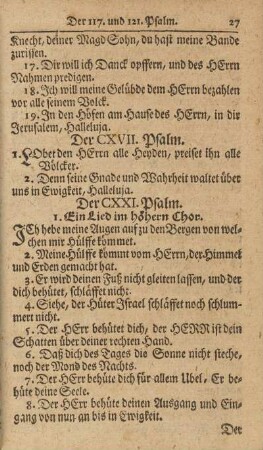 Der 117. und 121. Psalm. 27
Knecht, deiner Magd Sohn, du hast meine Bande
zurissen.
17. Dir will ich Danck opffern, und des HErrn
Nahmen predigen.
18. Ich will meine Gelübde dem HErrn bezahlen
vor alle seinem Volck.
19. In den Höfen am Hause des HErrn, in dir
Jerusalem, Halleluja.
Der CXVII. Psalm.
1. LObet den HErrn alle Heyden, preiset ihn alle
Völcker.
2. Denn seine Gnade und Wahrheit waltet über
uns in Ewigkeit, Halleluja.
Der CXXI. Psalm.
1. Ein Lied im höhern Chor.
ICh hebe meine Augen auf zu den Bergen von wel-
chen mir Hülffe kommet.
2. Meine Hülffe kommt vom HErrn, der Himmel
und Erden gemacht hat.
3. Er wird deinen Fuß nicht gleiten lassen, und der
dich behütet, schläffet nicht.
4. Siehe, der Hüter Israel schläffet noch schlum-
mert nicht.
5. Der HErr behütet dich, der HERR ist dein
Schatten über deiner rechten Hand.
6. Daß dich des Tages die Sonne nicht steche,
noch der Mond des Nachts.
7. Der HErr behüte dich für allem Ubel, Er be-
hüte deine Seele.
8. Der HErr behüte deinen Ausgang und Ein-
gang von nun an bis in Ewigkeit.
Der